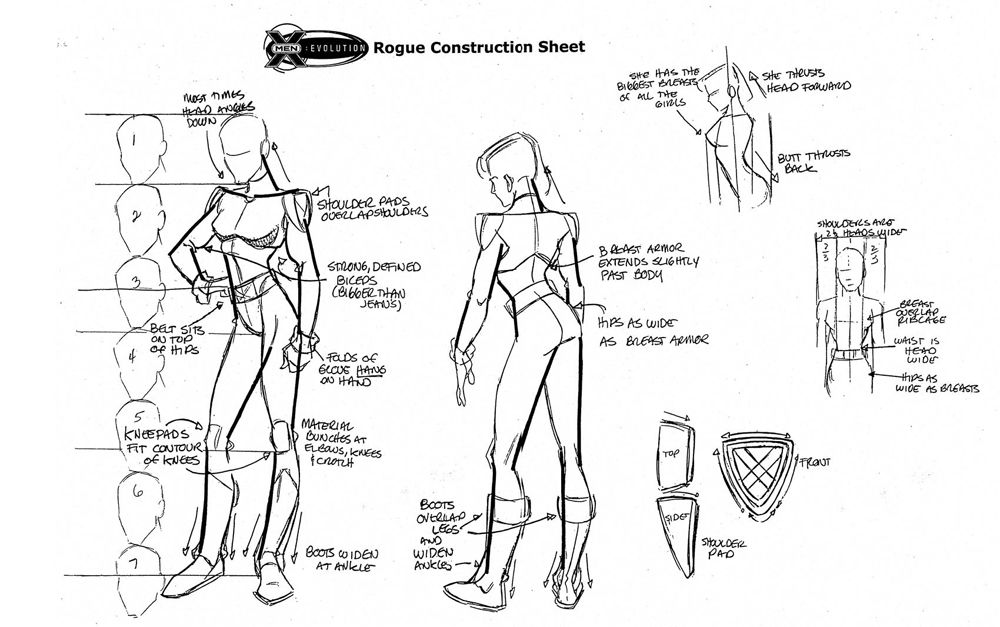 X
MEN : EVOLUTION
Rogue Construction Sheet
MOST TIMES
HEAD ANGLES
DOWN
1
2
3
4
5
6
7
SHOULDER PADS
OVERLAP SHOULDERS
STRONG, DEFINED
BICEPS
(BIGGER THAN
JEANS)
BELT SITS
ON TOP
OF HIPS
FOLDS OF
GLOVE HANG
ON HAND
KNEEPADS
FIT CONTOUR
OF KNEES
MATERIAL
BUNCHES AT
ELBOWS, KNEES
& CROTCH
BOOTS WIDEN
AT ANKLE
BREAST ARMOR
EXTENDS SLIGHTLY
PAST BODY
HIPS AS WIDE
AS BREAST ARMOR
BOOTS
OVERLAP
LEGS
AND
WIDEN
ANKLES
SHE HAS THE
BIGGEST BREASTS
OF ALL THE
GIRLS
SHE THRUSTS
HEAD FORWARD
BUTT THRUSTS
BACK
SHOULDERS ARE
HEADS WIDE
BREAST
OVERLAP
RIBCAGE
WAIST IS
HEAD
WIDE
HIPS AS
WIDE AS BREASTS
TOP
SIDE
FRONT
SHOULDER
PAD